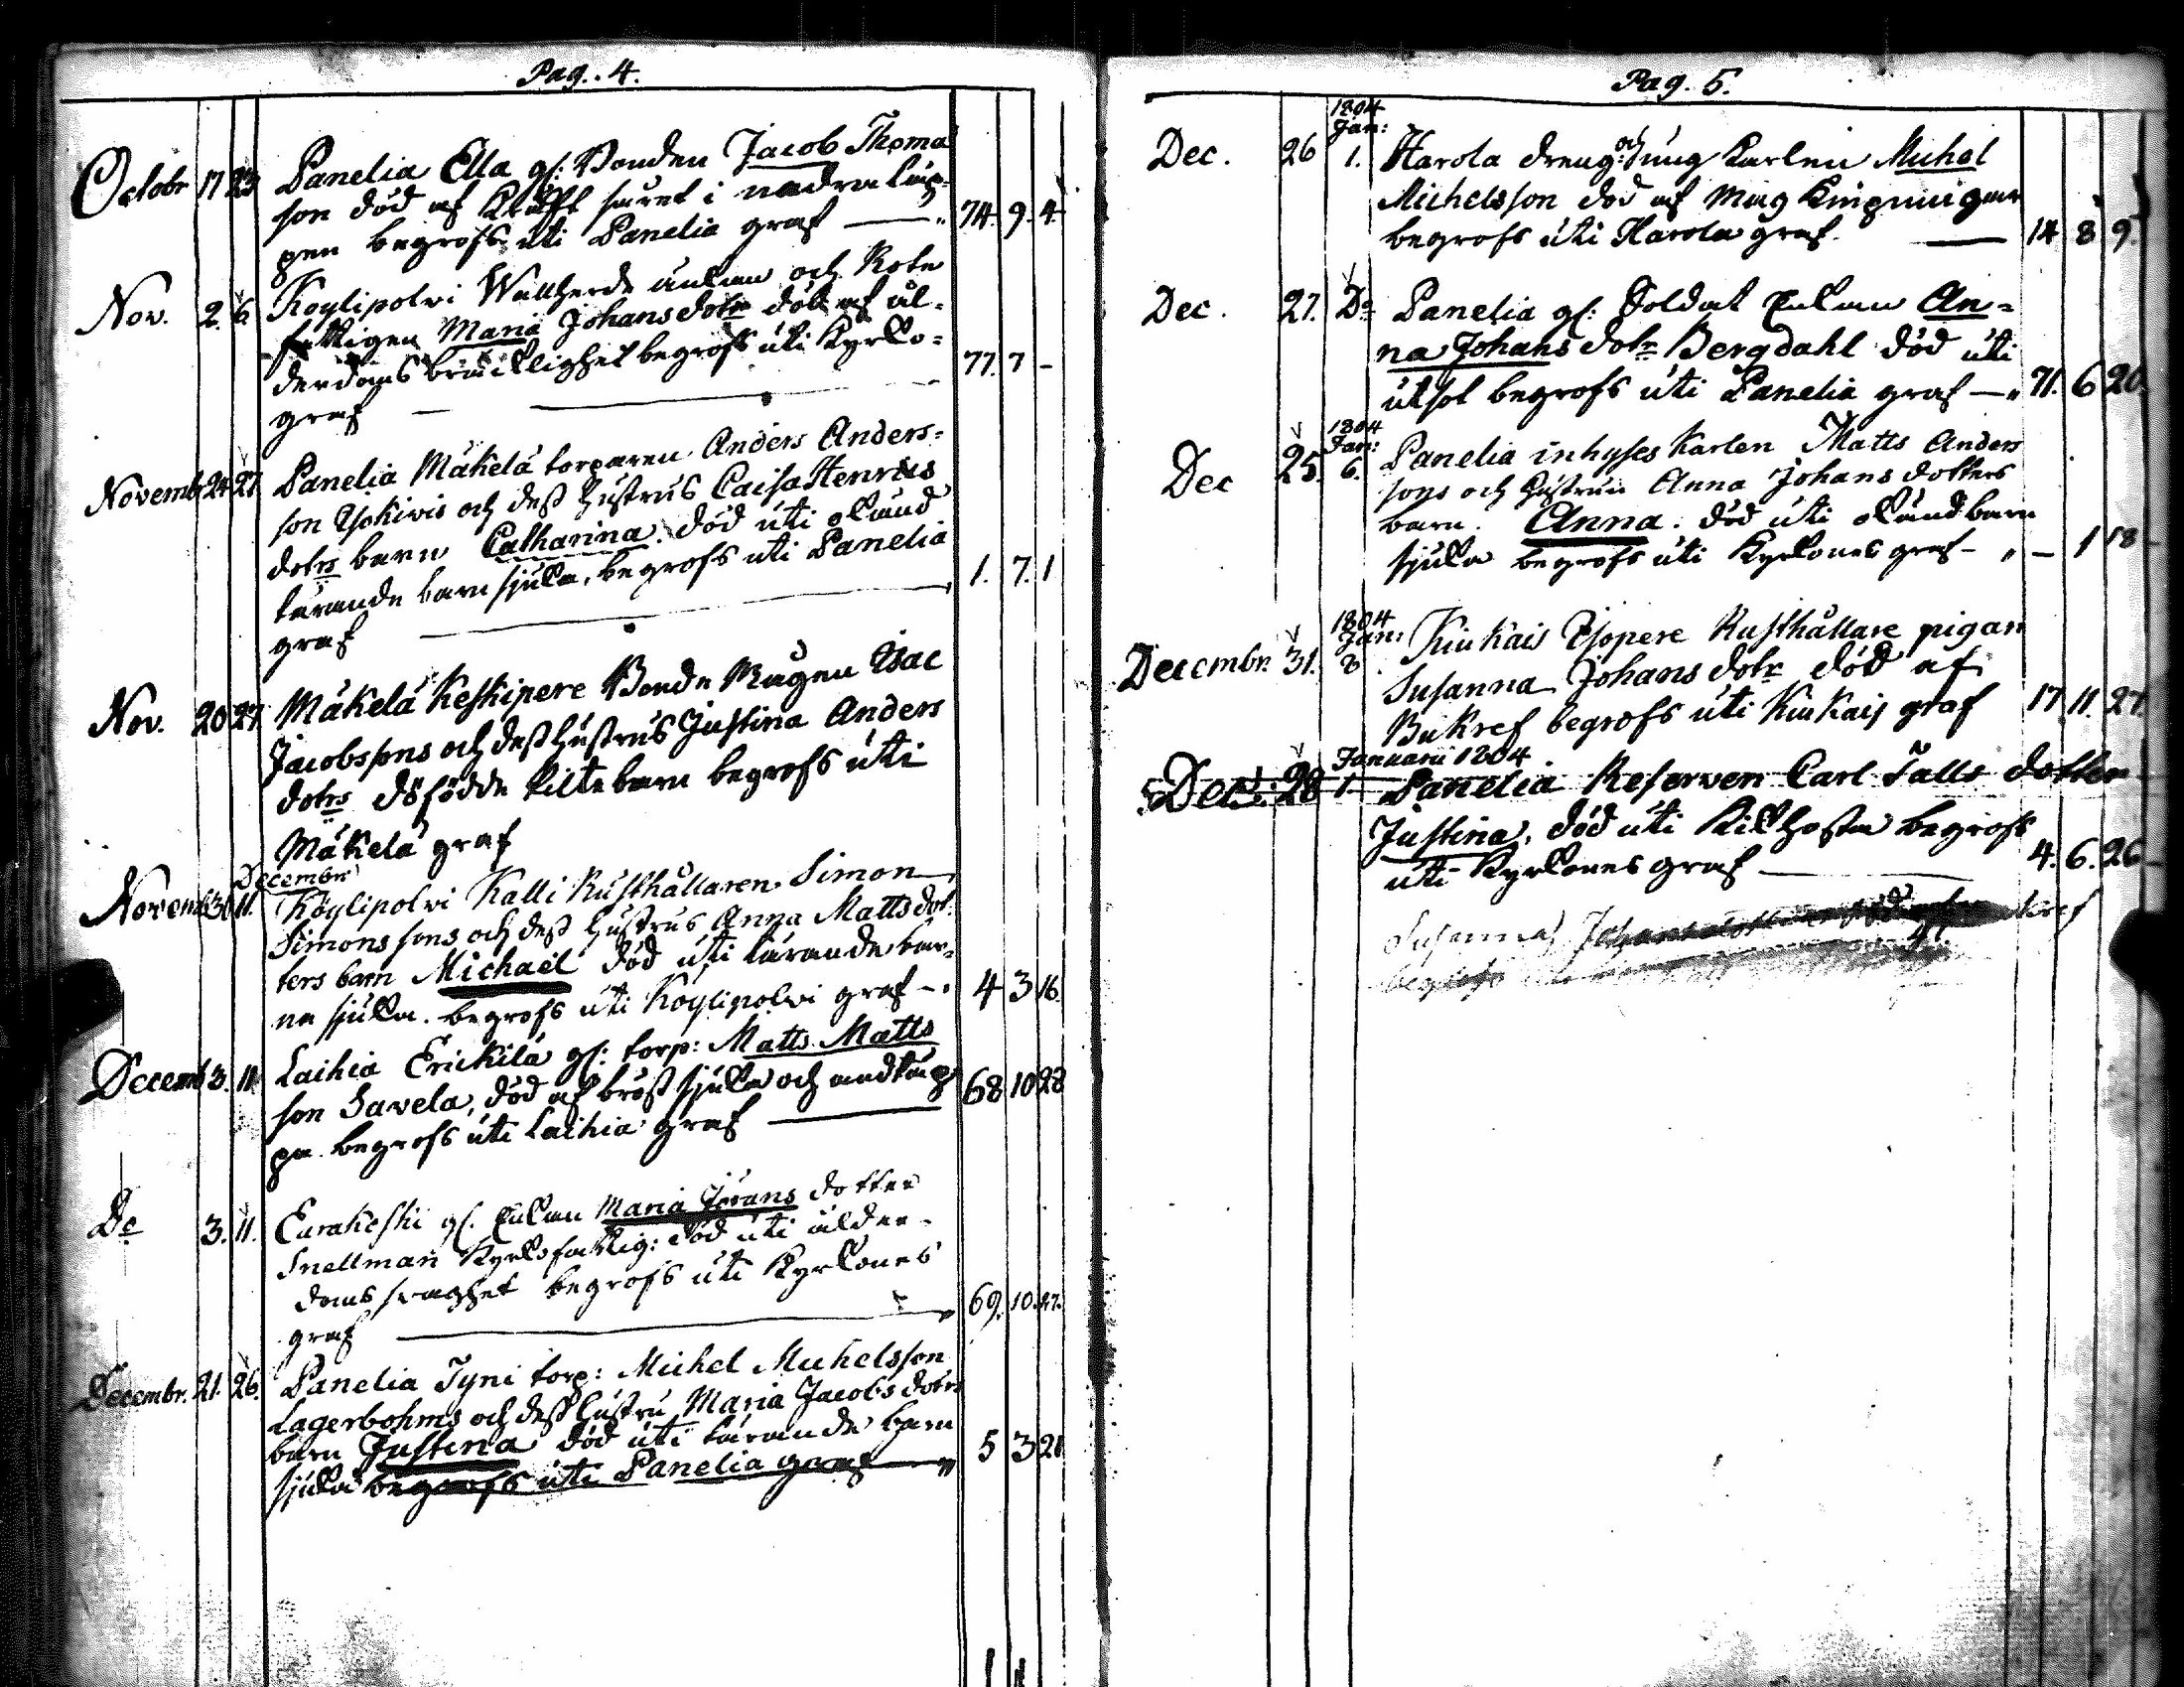 Pag. 4.
Octobr 17 23 Panelia Ella gl: Bonden Jacob Thoma
son död af Kräfft såret i nedra läp-
pen begrofs uti Panelia graf — " 74. 9. 4
Nov. 2. 6. Köylipolvi Wallherde änkan och Rote
fattigen Maria Johansdotr död af ål-
derdoms bräcklighet begrofs uti Kyrko- 77. 7 -
graf —
Novembr 24 27 Panelia Mäkelä torparen Anders Anders-
son och dess hustrus Caisa Henrics
dotrs barn Catharina. död uti okänd
tärande barn sjuka, begrofs uti Panelia 1. 7. 1
graf —
Nov. 20 27. Mäkelä Keskipere Bonde Mågen Isac
Jacobssons och dess hustrus Justina Anders
dotrs döfödde piltebarn begrofs uti
Mäkelä graf
Decembr
Novemb 30 11. Köylipolvi Kalli Rusthållaren Simon
Simonssons och dess hustrus Anna Matts dot-
ters barn Michael död uti tärande bar-
na sjuka. begrofs uti Köylipolvi graf — 4 3 16.
Decemb 3. 11. Laihia Erickilä gl: torp: Matts Matts
son Savela, död af bröst sjuka och andtäp 68 10 28
pa begrofs uti Laihia graf —
Do 3. 11. Eurakoski gl. Enkan Maria Jörans dotter
Snellman Kyrkofattig: död uti ålder-
doms svaghet begrofs uti Kyrkones
graf — " 69. 10. 27.
Decembr. 21. 26. Panelia Tyni torp: Michel Michelsson
Lagerbohms och dess hustru Maria Jacobs dotrs
barn Justina död uti tärande barn 5 3 21
sjuka begrofs uti Panelia graf — "
Pag. 5.
1804
Jan:
Dec. 26 1. Harola dreng: och ung Karlen Michel
Michelsson död af mag
begrofs uti Harola graf. — 14 8 9.
Dec. 27. Do Panelia gl: Soldat Enkan An-
na Johans dotr Bergdahl död uti
utsot begrofs uti Panelia graf — " 71. 6 20.
1804
Jan:
Dec 25. 6. Panelia inhyses Karlen Matts Anders
sons och hustrun Anna Johans dotters
barn. Anna. död uti okänd barn
sjuka begrofs uti Kyrkones graf — " — 1 18
1804
Jan:
Decembr. 31. 8 Kiukais Rusthållare pigan
Susanna Johans dotr död af
Bukref begrofs uti Kiukais graf 17. 11. 27.
Januari 1804
Dec. 28 1. Panelia Reserven Carl Talls dotter
Justina, död uti Kikhosta begrofs
uti Kyrkones graf — 4. 6. 26
Susanna Johans
begrofs